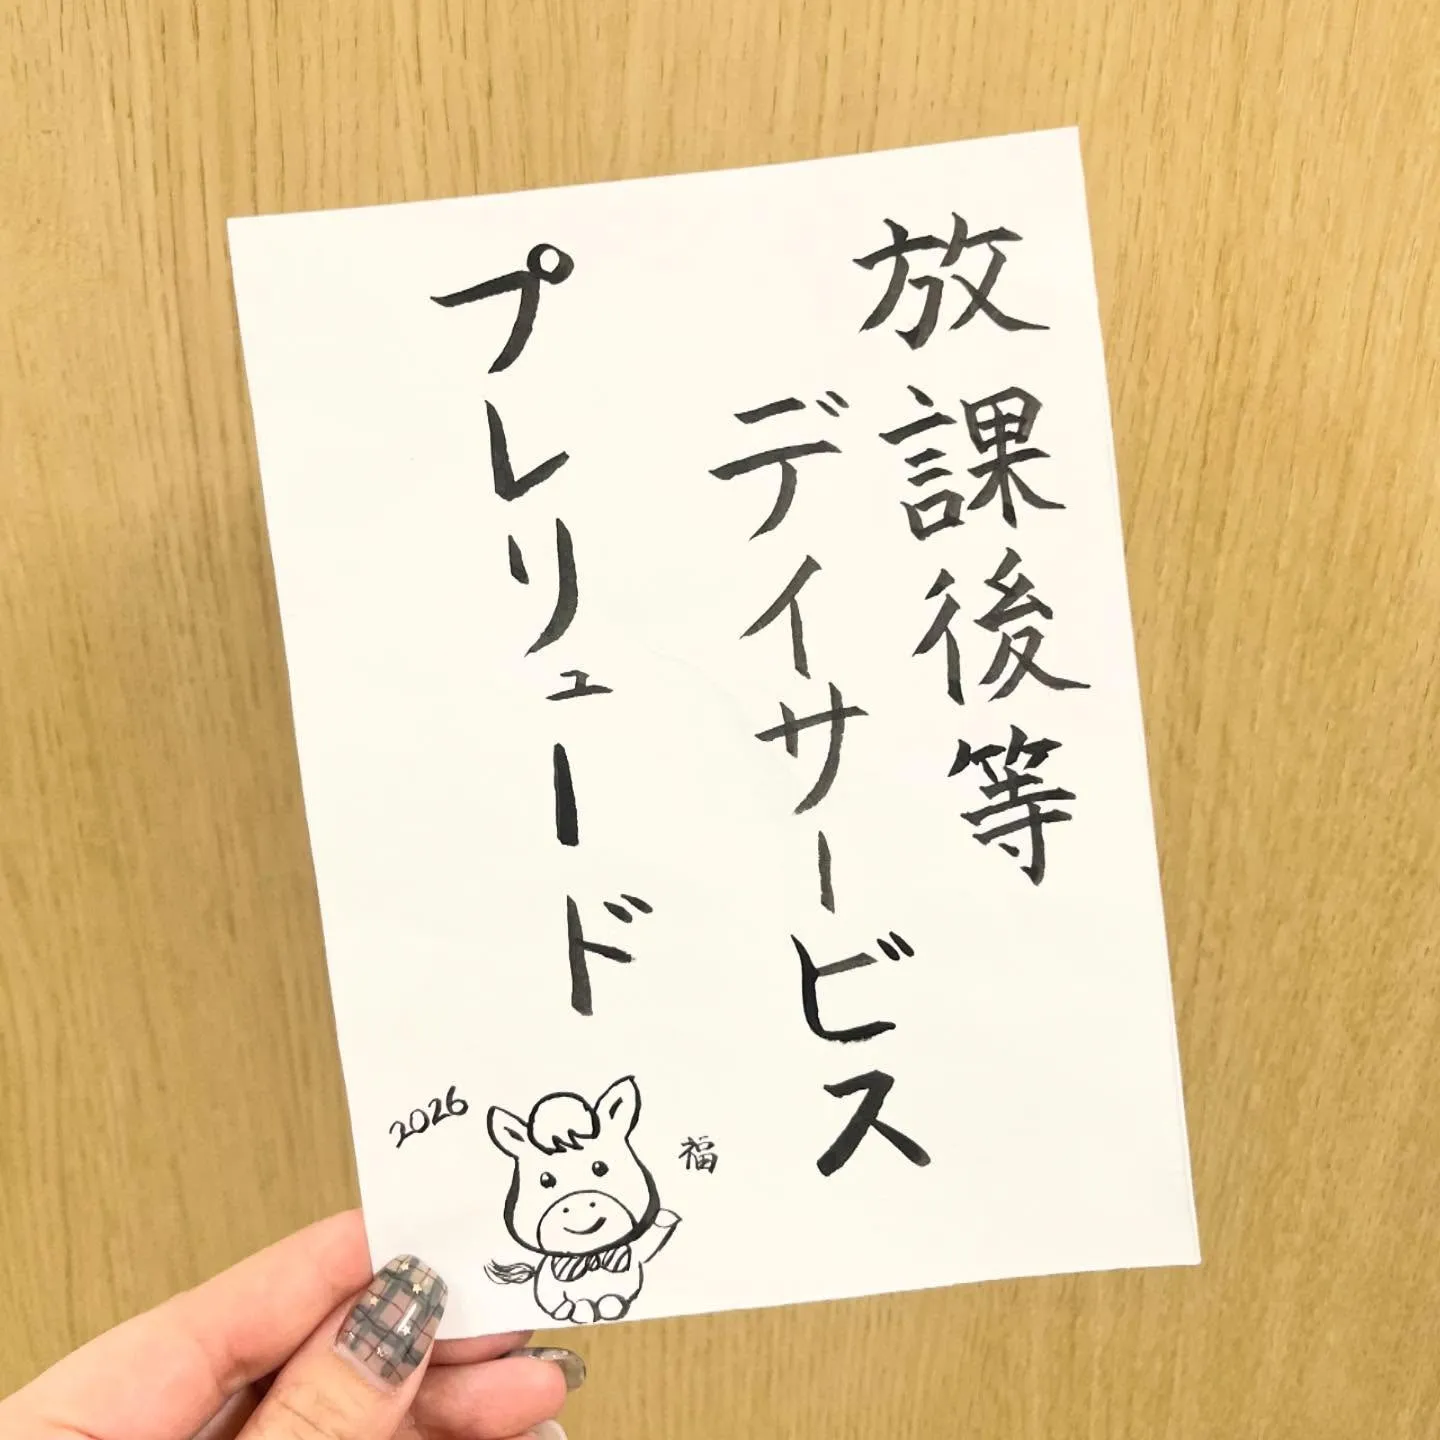 放課後等
デイサービス
プレリュード
2026
福